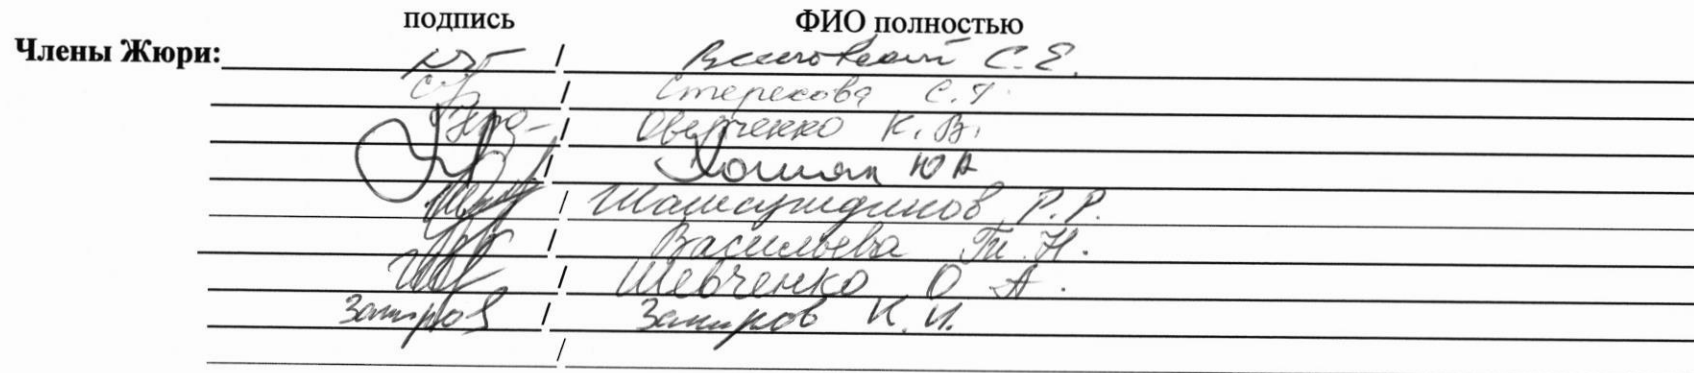 подпись ФИО полностью
Члены Жюри: / С.Е.
/ Стерехова С.
/ Оверченко К.В.
/ Хошян Ю А
/ Шамсутдинов Р.Р.
/ Васильева Т.Н.
/ Шевченко О А.
Закиров / Закиров К.И.
/